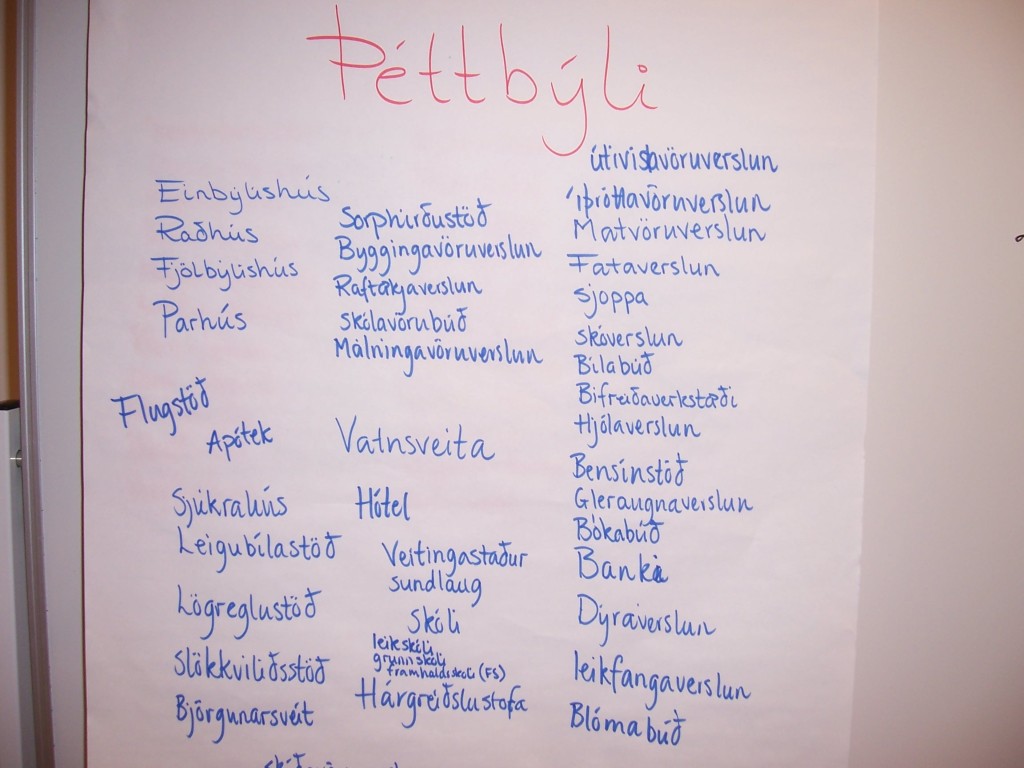 Þéttbýli
Einbýlishús
Raðhús
Fjölbýlishús
Parhús
Flugstöð
Apótek
Sjúkrahús
Leigubílastöð
Lögreglustöð
Slökkviliðsstöð
Björgunarsveit
Sorphirðustöð
Byggingavöruverslun
Raftækjaverslun
Skólavörubúð
Málningavöruverslun
Vatnsveita
Hótel
Veitingastaður
sundlaug
Skóli
leikskóli
grunnskóli
framhaldsskóli (FS)
Hárgreiðslustofa
útivistavöruverslun
íþróttavöruverslun
Matvöruverslun
Fataverslun
sjoppa
skóverslun
Bílabúð
Bifreiðaverkstæði
Hjólaverslun
Bensínstöð
Gleraugnaverslun
Bókabúð
Banki
Dýraverslun
leikfangaverslun
Blómabúð